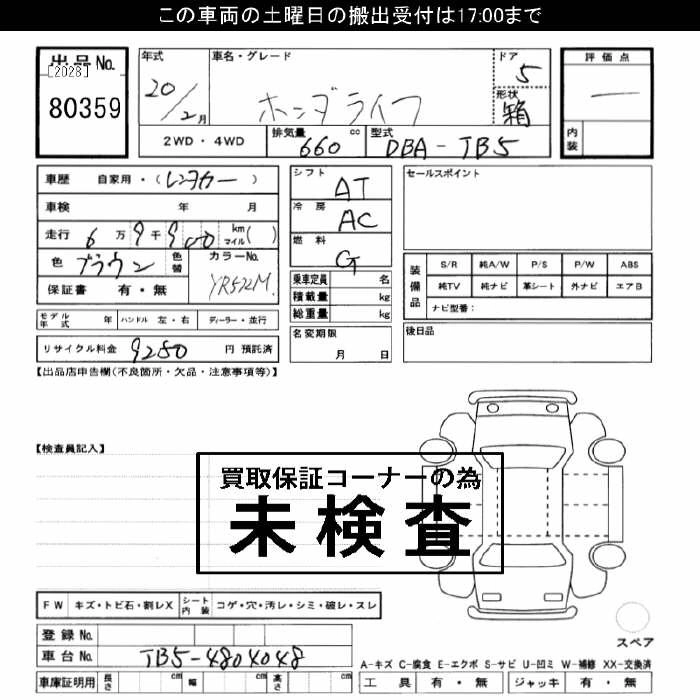 この車両の土曜日の搬出受付は17:00まで
出品No.
[2028]
80359
年式
20/2月
車名・グレード
ホンダライフ
ドア
5
形状
箱
評価点
―
内装
2WD・4WD
排気量
660 cc
型式
DBA-TB5
車歴 自家用・(レンタカー)
車検 年 月
走行 6万9千900 km マイル( )
色 ブラウン 色替
カラーNo.
YR572M
保証書 有・無
モデル年式 年 ハンドル 左・右 ディーラー・並行
リサイクル料金 9280 円 預託済
シフト
AT
冷房
AC
燃料
G
乗車定員 名
積載量 kg
総重量 kg
名変期限
月 日
セールスポイント
装備品
S/R 純A/W P/S P/W ABS
純TV 純ナビ 革シート 外ナビ エアB
ナビ型番:
後日品
【出品店申告欄(不良箇所・欠品・注意事項等)】
【検査員記入】
買取保証コーナーの為
未検査
FW キズ・トビ石・割レX シート内装 コゲ・穴・汚レ・シミ・破レ・スレ
登録No.
車台No. TB5-4804048
車庫証明用 長さ cm 幅 cm 高さ cm
スペア
A-キズ C-腐食 E-エクボ S-サビ U-凹ミ W-補修 XX-交換済
工具 有・無 ジャッキ 有・無